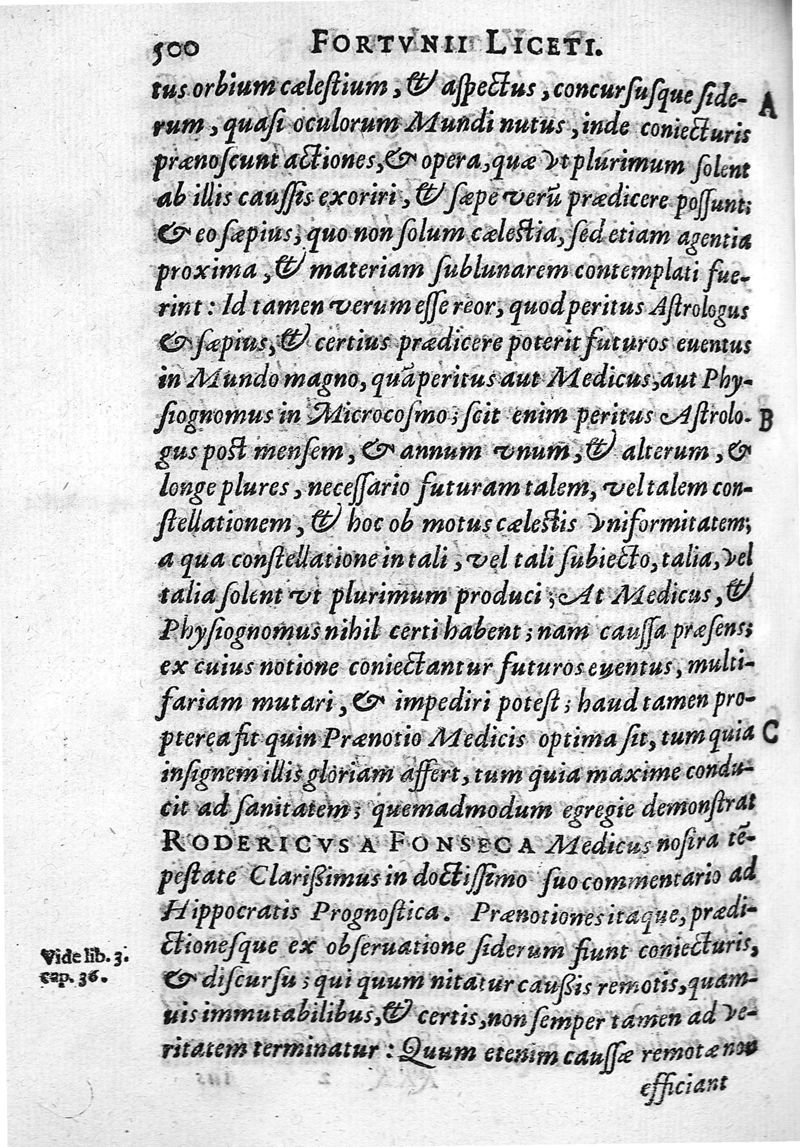 500 FORTVNII LICETI.
tus orbium cælestium, & aspectus, concursusque side-
rum, quasi oculorum Mundi nutus, inde coniecturis
prænoscunt actiones, & opera, quæ vt plurimum solent
ab illis caussis exoriri, & sæpe verũ prædicere possunt;
& eo sæpius, quo non solum cælestia, sed etiam agentia
proxima, & materiam sublunarem contemplati fue-
rint: Id tamen verum esse reor, quod peritus Astrologus
& sæpius, & certius prædicere poterit futuros euentus
in Mundo magno, quã peritus aut Medicus, aut Phy-
siognomus in Microcosmo; scit enim peritus Astrolo-
gus post mensem, & annum vnum, & alterum, &
longe plures, necessario futuram talem, vel talem con-
stellationem, & hoc ob motus cælestis vniformitatem;
a qua constellatione in tali, vel tali subiecto, talia, vel
talia solent vt plurimum produci; At Medicus, &
Physiognomus nihil certi habent; nam caussa præsens;
ex cuius notione coniectantur futuros euentus, multi-
fariam mutari, & impediri potest; haud tamen pro-
pterea fit quin Prænotio Medicis optima sit, tum quia
insignem illis gloriam affert, tum quia maxime condu-
cit ad sanitatem; quemadmodum egregie demonstrat
RODERICVS A FONSECA Medicus nostra tẽ-
pestate Clarißimus in doctissimo suo commentario ad
Hippocratis Prognostica. Prænotiones itaque, prædi-
ctionesque ex obseruatione siderum fiunt coniecturis,
& discursu; qui quum nitatur caußis remotis, quam-
uis immutabilibus, & certis, non semper tamen ad ve-
ritatem terminatur: Quum etenim caussæ remotæ non
efficiant
A
B
C
Vide lib. 3.
cap. 36.